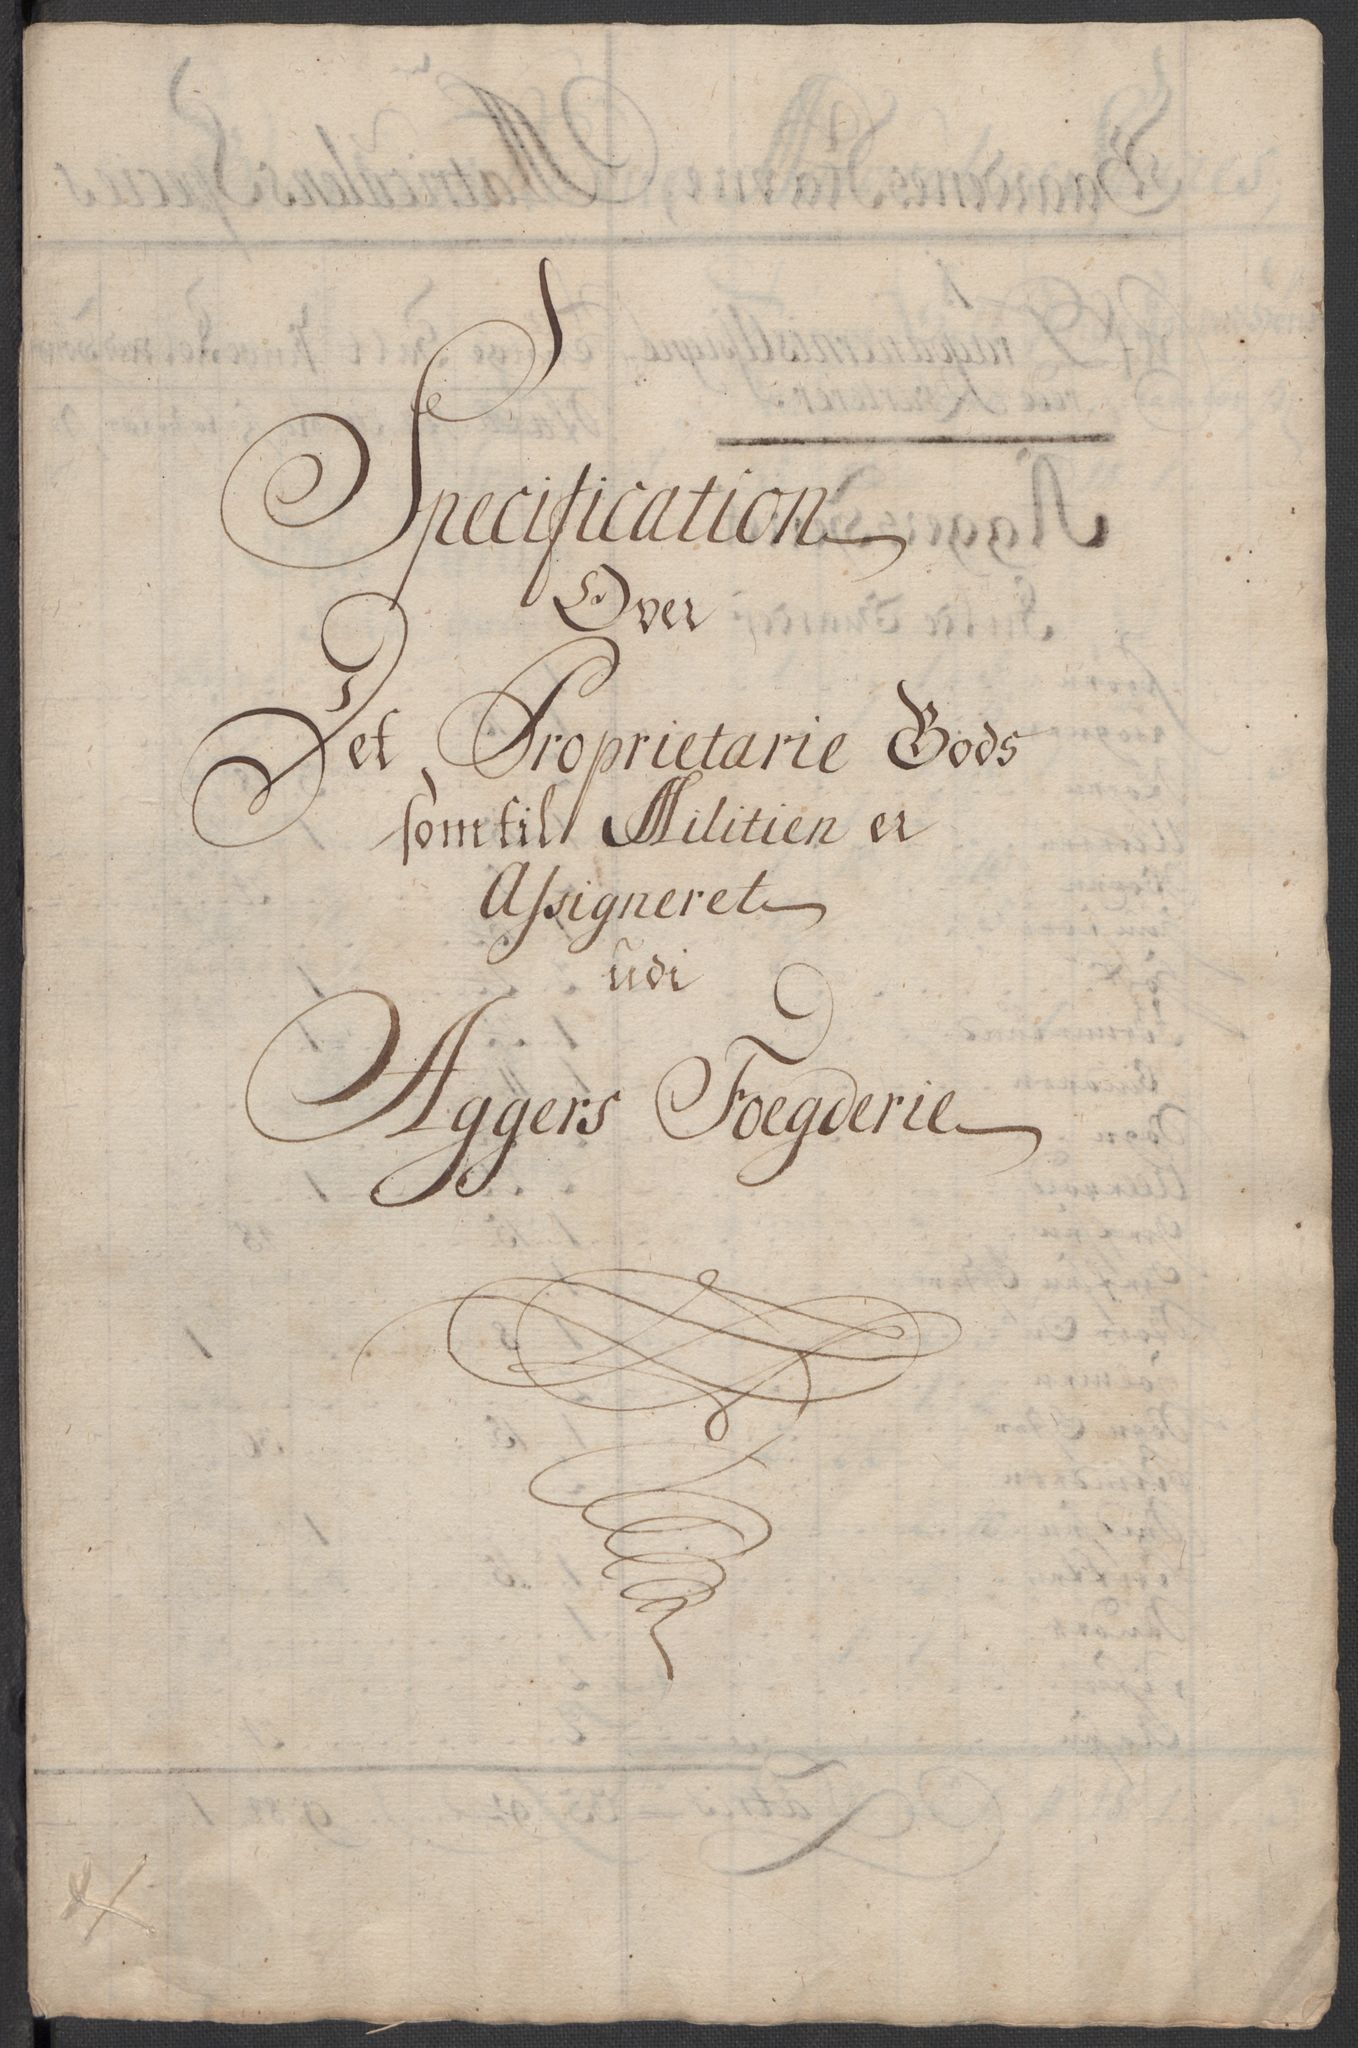 Specification
Over
Det Proprietarie Gods
som til Militien er
Assigneret
udi
Aggers Foegderie